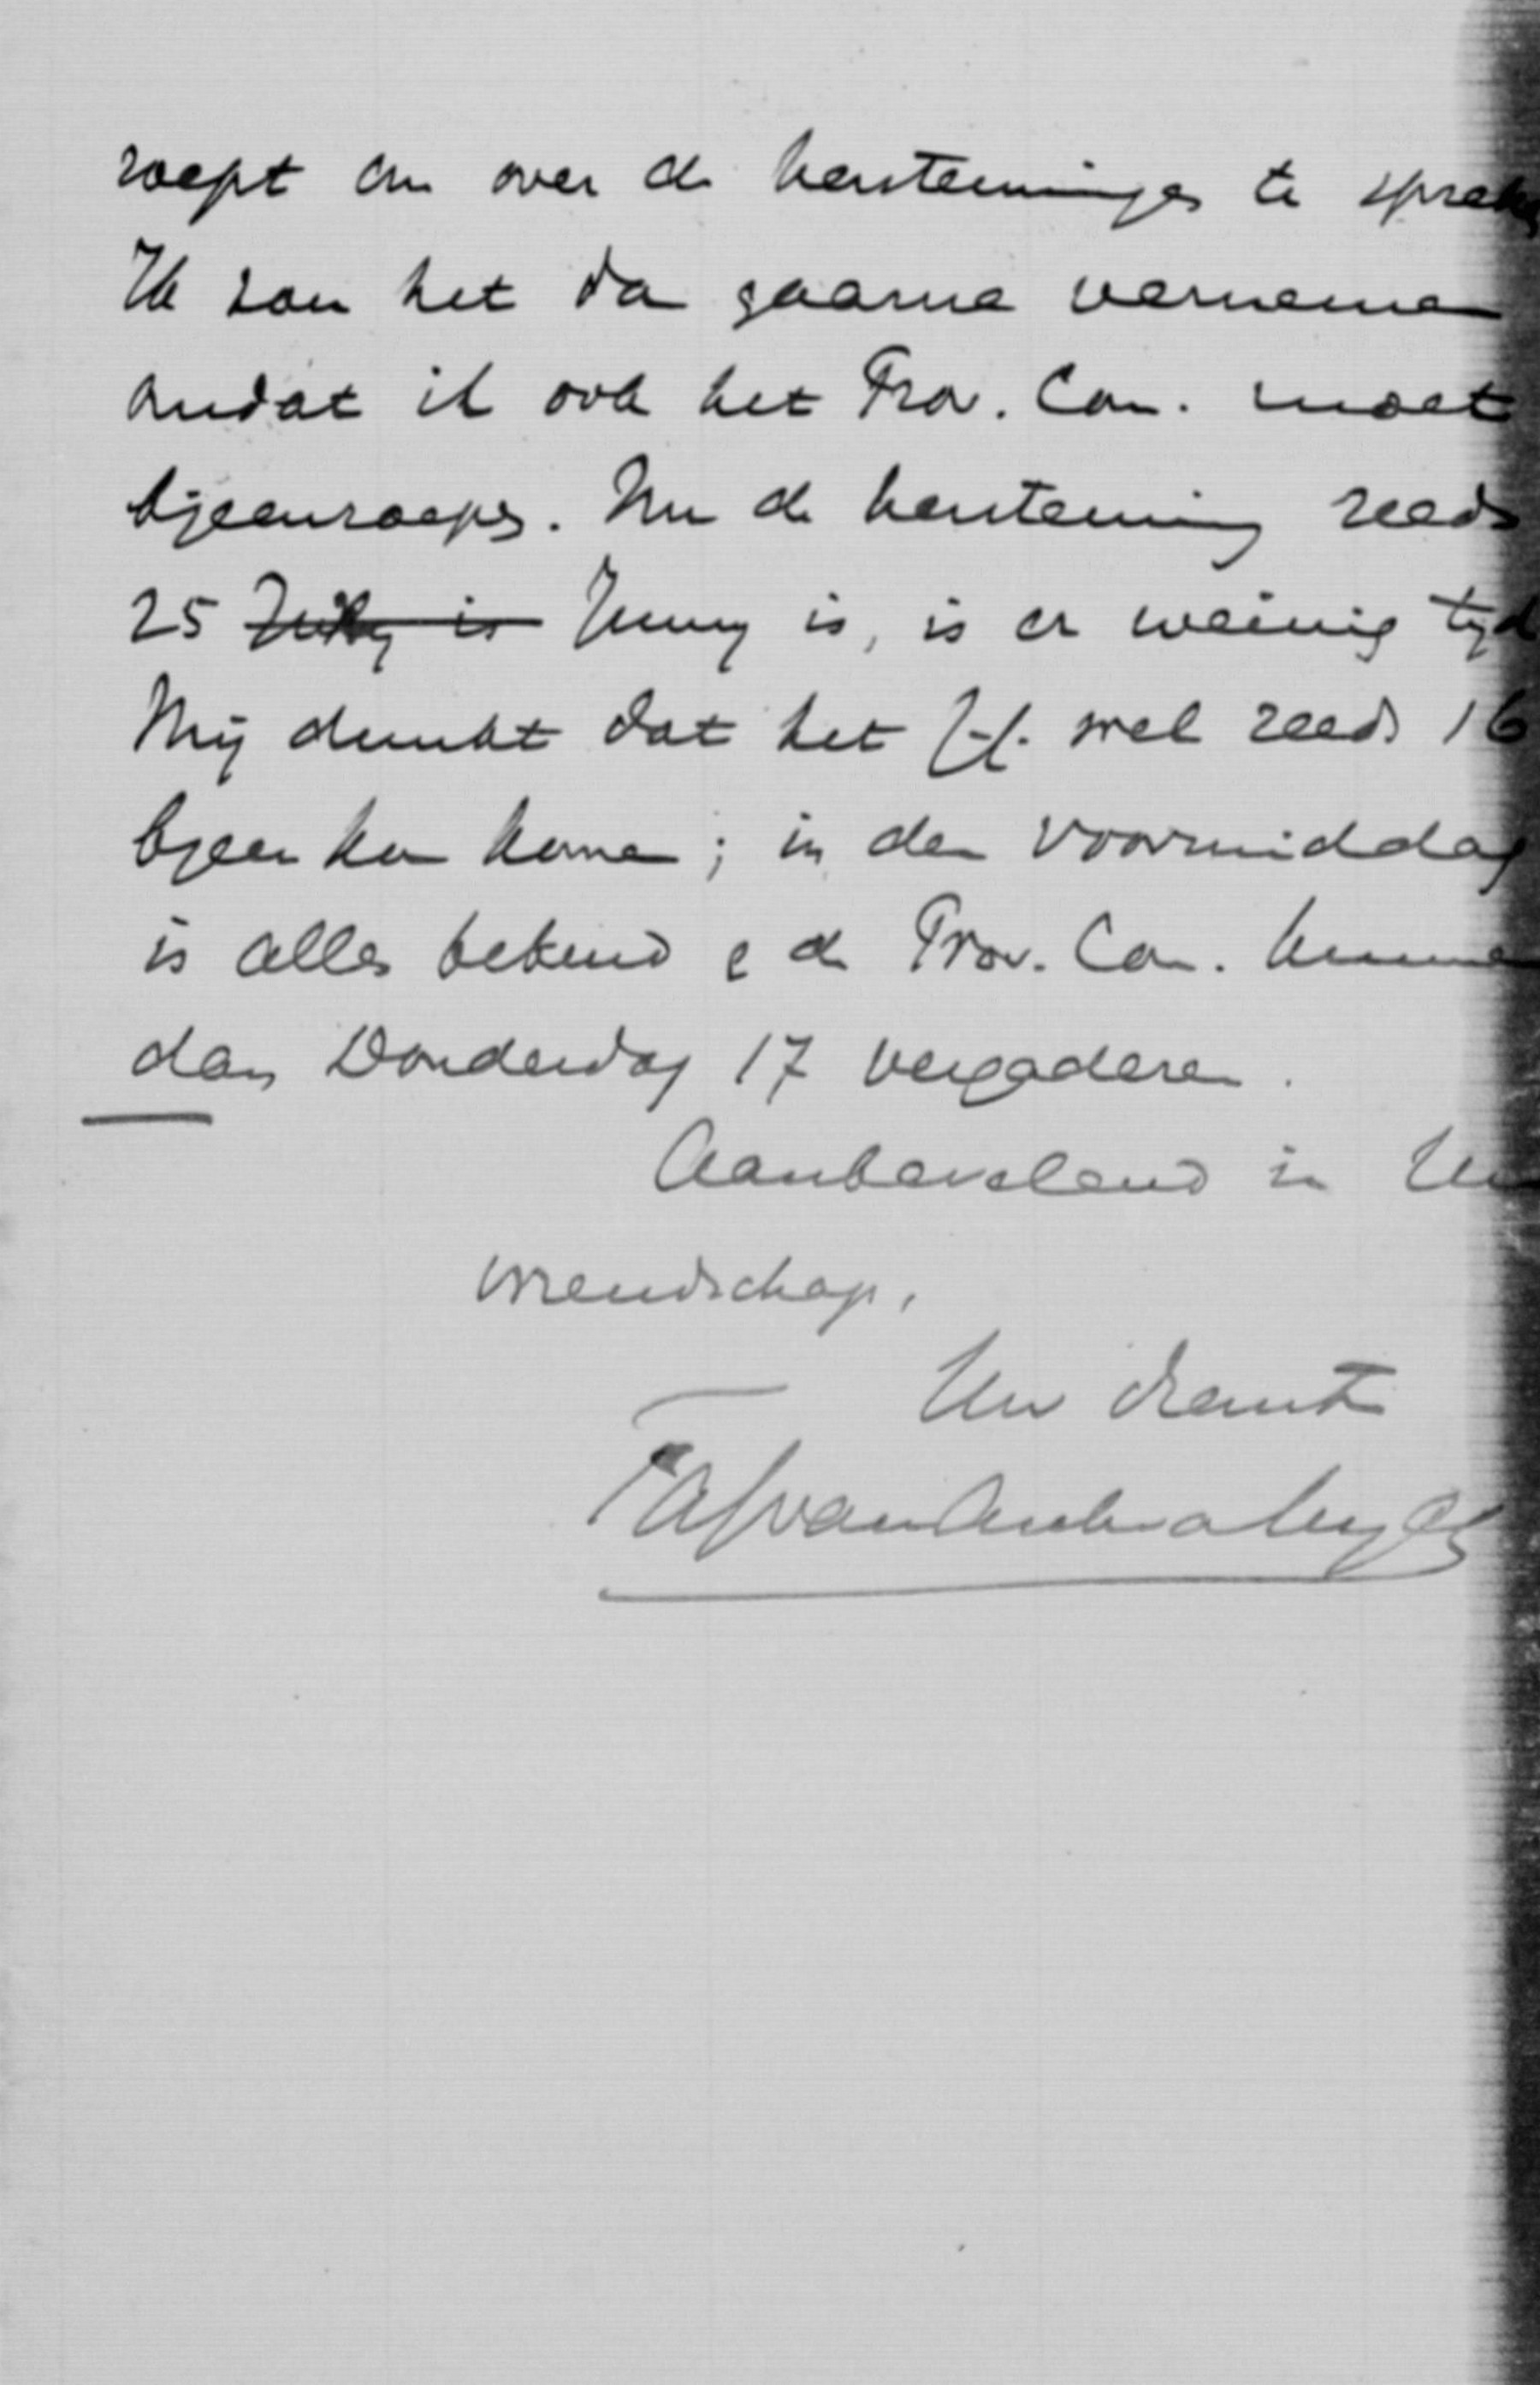 roept om over de herstemmingen te spreken
Ik zou het dan gaarne vernemen
omdat ik ook het Prov. Com. moet
bijeenroepen. Nu de herstemming reeds
25 July is Juny is, is er weinig tijd
Mij dunkt dat het wel reeds 16
bijeen kan komen; in den voormiddag
is alles bekend & de Prov. Com. kunnen
dan Donderdag 17 vergaderen.
Aanbevelend in Uw
vriendschap,
Uw dienstv